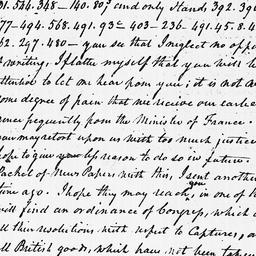 31. 534. 348 — 140. 80? and only Stands 392. 39
77 — 494. 568. 491. 93 = 403 — 236. 491. 45. 8. 4
62. 247. 480 — you see that I neglect no oppo
f writing, I flatter myself that you will be
attentive to let me hear from you; it is not w
some degree of pain that we receive our earlie
rmences frequently from the Minister of France.
you may retort upon us with too much justice
hope to give you reason to do so in future.
Packet of News Papers with this, I sent another
time ago. I hope they may reach you, in one of t
will find an ordinance of Congress, which
all their resolutions with respect to Captures, a
all British goods, which have not been taken